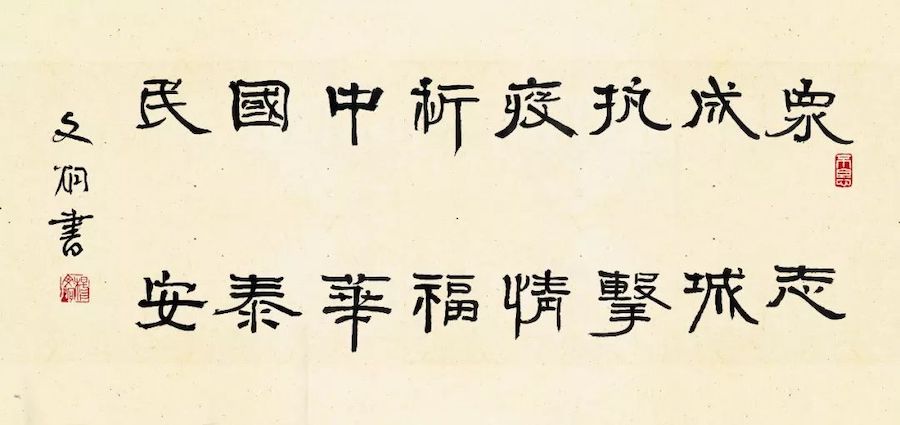 眾志
成城
抗擊
疫情
祈福
中華
國泰
民安
文炯書